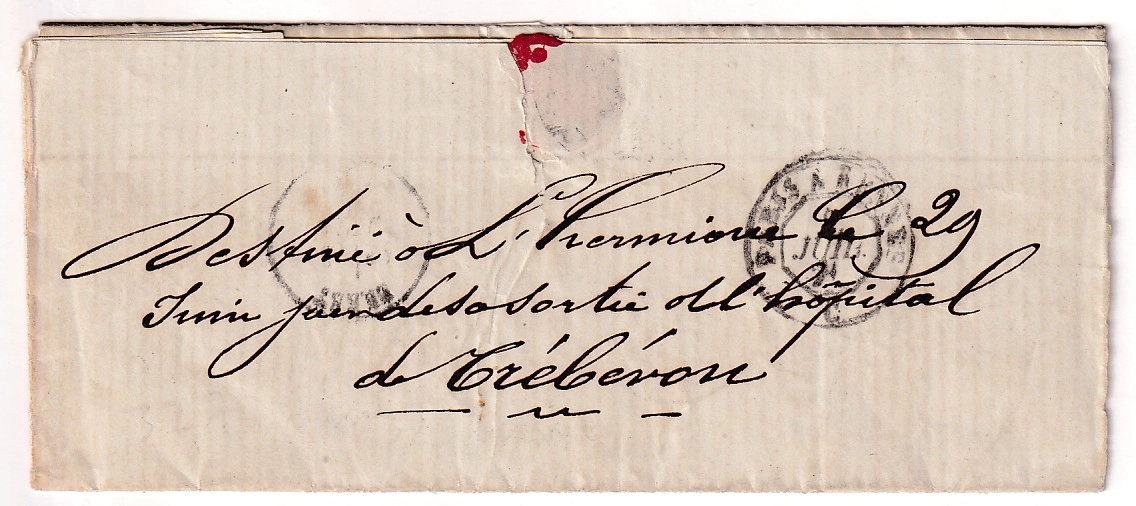 Destiné à L'Hermione le 29
Juin jour de sa sortie de l'hôpital
de Trébéron
PARIS A RENNES
JUIL.